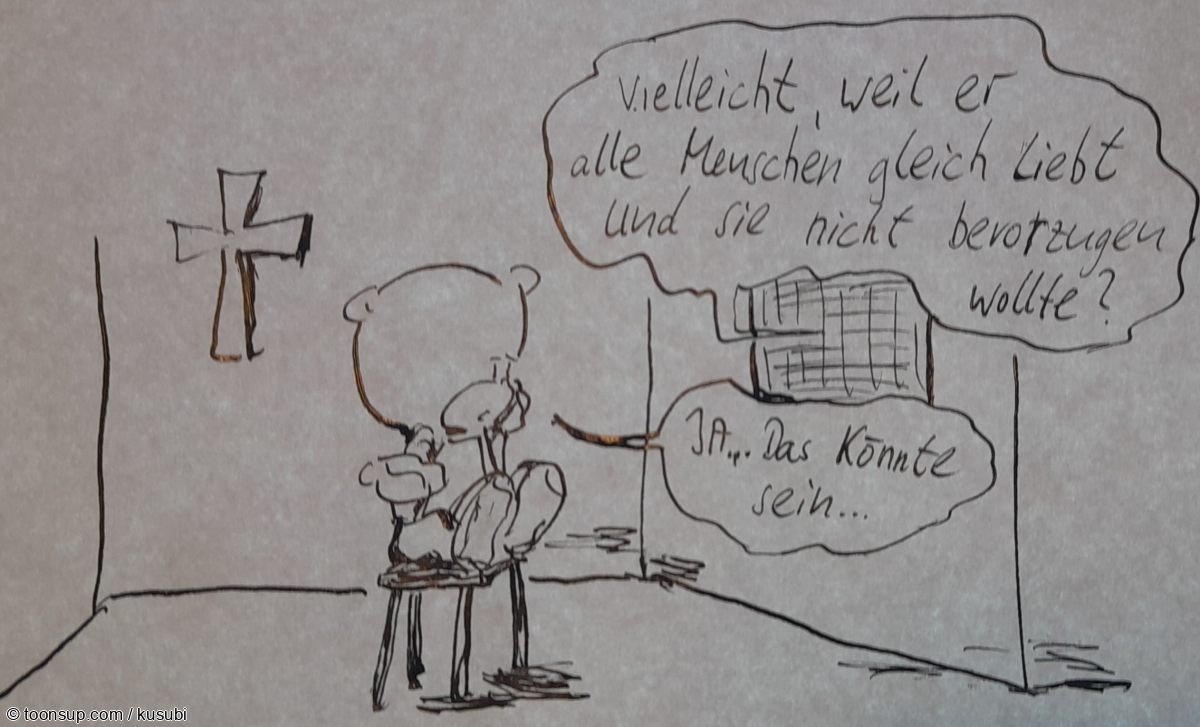 Vielleicht, weil er
alle Menschen gleich Liebt
Und sie nicht bevorzugen
wollte?
JA... Das Könnte
sein...
© toonsup.com / kusubi